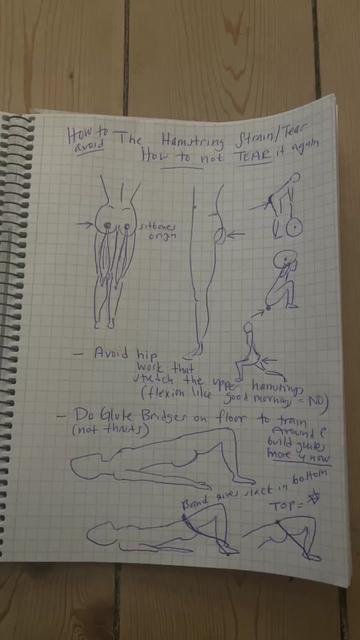 How to avoid The Hamstring Strain/Tear
How to not TEAR it again
sitbones
origin
- Avoid hip
work that
stretch the upper hamstrings
(flexion like good mornings = NO)
- Do Glute Bridges on floor to train
(not thrusts)
Around &
build glutes
more 4 now
Band gives slack in bottom
TOP =